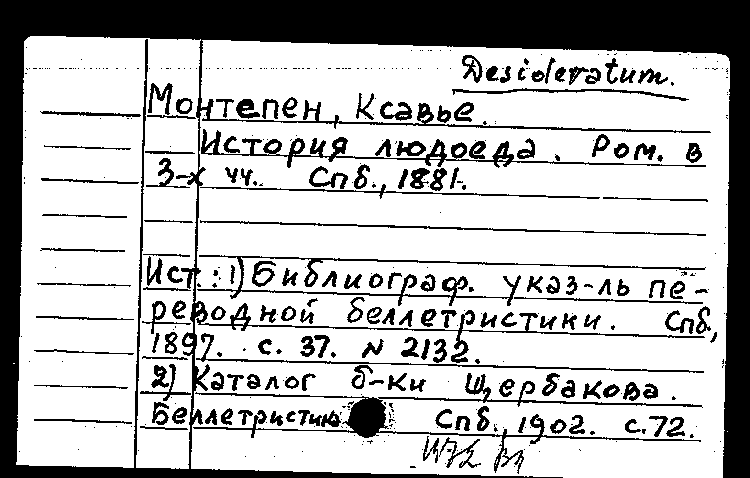 Desideratum.
Монтепен, Ксавье.
История людоеда. Ром. в
3-х чч. Спб., 1881.
Ист.: 1) Библиограф. указ-ль пе-
реводной беллетристики. Спб.,
1897. с. 37. N 2132.
2) Каталог б-ки Щербакова.
Беллетристика Спб., 1902. с. 72.